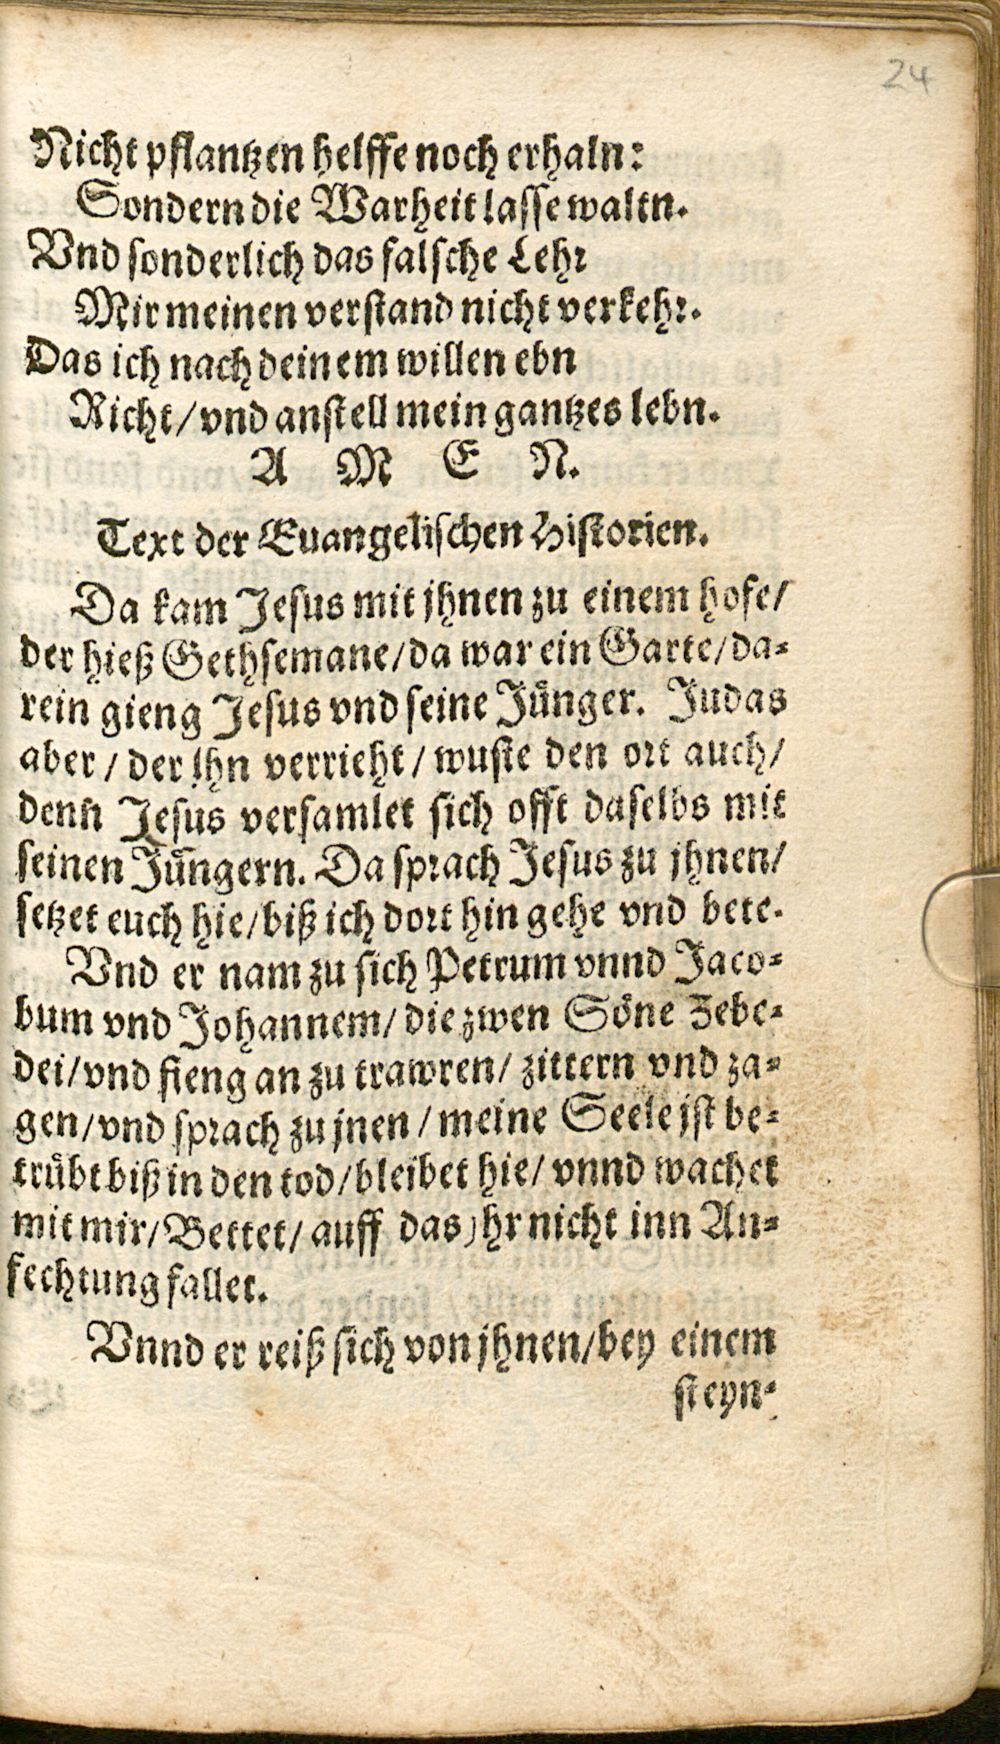 24
Nicht pflantzen helffe noch erhaln:
Sondern die Warheit lasse waltn.
Vnd sonderlich das falsche Lehr
Mir meinen verstand nicht verkehr.
Das ich nach deinem willen ebn
Richt/ vnd anstell mein gantzes lebn.
A M E N.
Text der Euangelischen Historien.
Da kam Jesus mit jhnen zu einem hofe/
der hieß Gethsemane/ da war ein Garte/ da-
rein gieng Jesus vnd seine Jünger. Judas
aber / der jhn verrieht / wuste den ort auch/
denn Jesus versamlet sich offt daselbs mit
seinen Jüngern. Da sprach Jesus zu jhnen/
setzet euch hie/ biß ich dort hin gehe vnd bete.
Vnd er nam zu sich Petrum vnnd Jaco-
bum vnd Johannem/ die zwen Söne Zebe-
dei/ vnd fieng an zu trawren/ zittern vnd za-
gen/ vnd sprach zu jnen / meine Seele jst be-
trübt biß in den tod/ bleibet hie/ vnnd wachet
mit mir/ Bettet/ auff das jhr nicht inn An-
fechtung fallet.
Vnnd er reiß sich von jhnen/ bey einem
steyn-